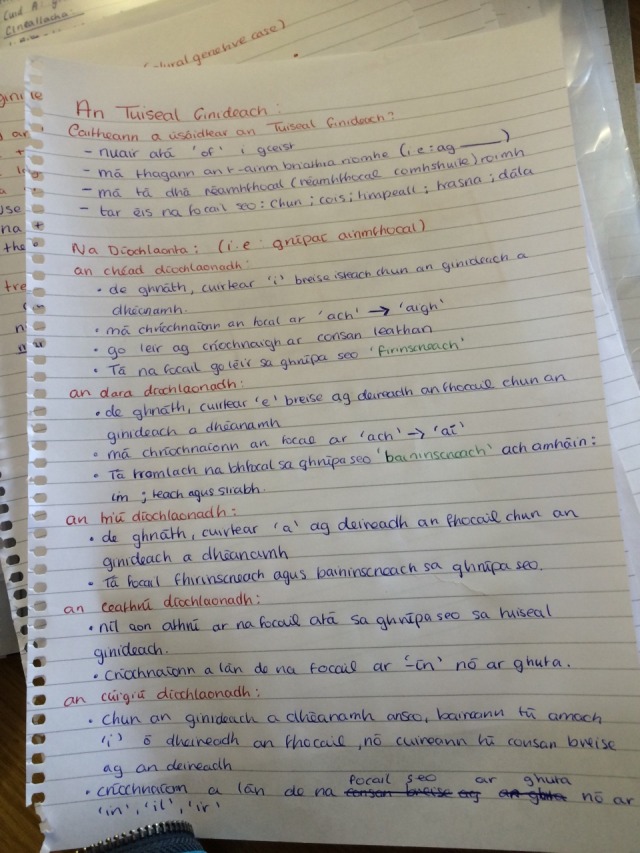 Cuid A:
(plural genetive case)
An Tuiseal Ginideach:
Caitheann a úsáidtear an Tuiseal Ginideach?
- nuair atá 'of' i gceist
- má thagann an t-ainm briathra roimhe (i.e: ag ____)
- má tá dhá réamhfhocal (réamhfhocal comhshuite) roimh
- tar éis na focail seo: chun; cois; timpeall; trasna; dála
Na Díochlaonta: (i.e: grúpaí ainmfhocal)
an chéad díochlaonadh:
• de ghnáth, cuirtear 'i' breise isteach chun an ginideach a
dhéanamh.
• má chríochnaíonn an focal ar 'ach' → 'aigh'
• go leir ag críochnaigh ar consan leathan
• Tá na focail go léir sa ghrúpa seo 'firinscneach'
an dara díochlaonadh:
• de ghnáth, cuirtear 'e' breise ag deireadh an fhocail chun an
ginideach a dhéanamh
• má chríochnaíonn an focal ar 'ach' → 'aí'
• Tá tromlach na bhfocal sa ghrúpa seo 'baininscneach' ach amháin:
im; teach agus sliabh.
an tríú díochlaonadh:
• de ghnáth, cuirtear 'a' ag deireadh an fhocail chun an
ginideach a dhéanamh
• Tá focail fhirinscneach agus baininscneach sa ghrúpa seo.
an ceathrú díochlaonadh:
• níl aon athrú ar na focail atá sa ghrúpa seo sa tuiseal
ginideach.
• Críochnaíonn a lán de na focail ar '-ín' nó ar ghuta.
an cúigiú díochlaonadh:
• chun an ginideach a dhéanamh anseo, baineann tú amach
'i' ó dheireadh an fhocail, nó cuireann tú consan breise
ag an deireadh
• críochnaíonn a lán de na focail seo ar ghuta nó ar
'in', 'il', 'ir'